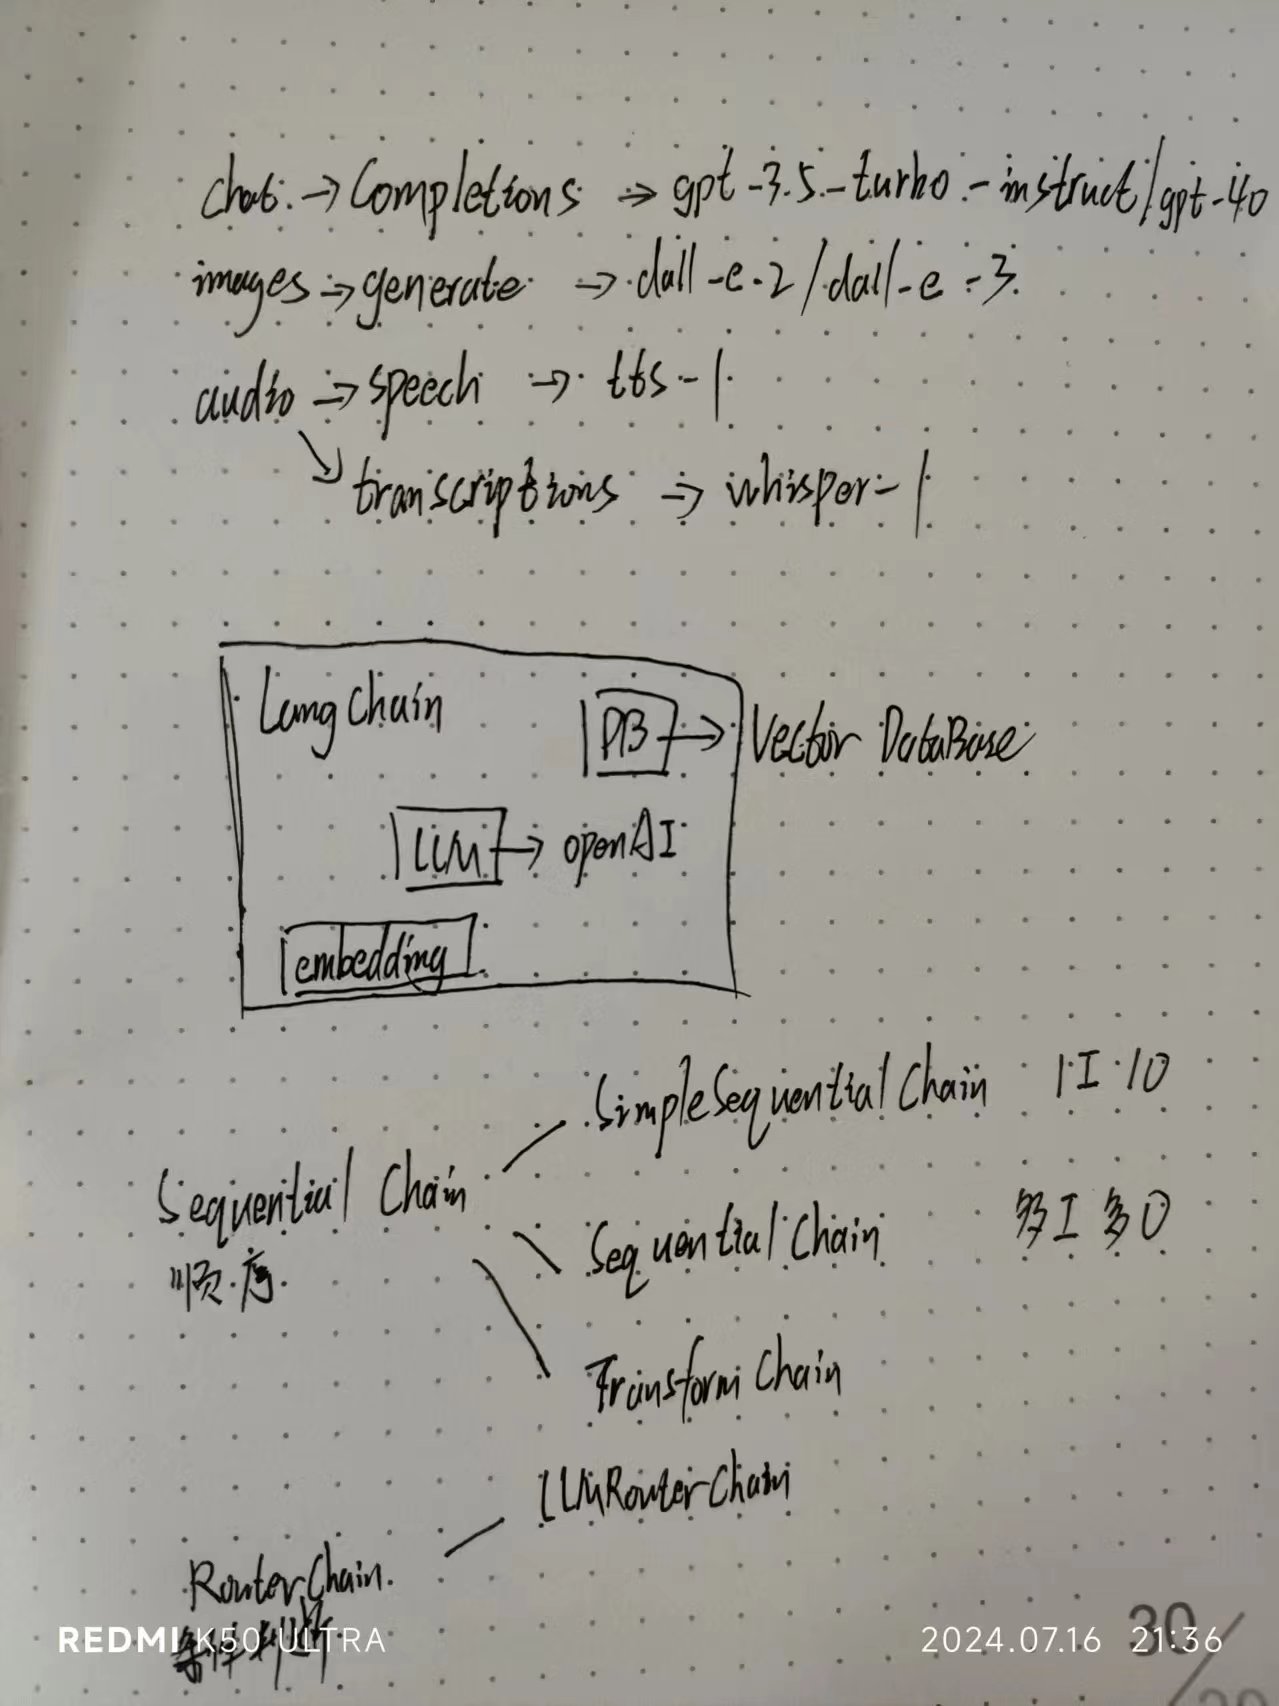 chat → Completions → gpt-3.5-turbo-instruct/gpt-4o
images → generate → dall-e-2/dall-e-3
audio → speech → tts-1
transcriptions → whisper-1
LangChain
DB → Vector DataBase
LLM → openAI
embedding
SimpleSequentialChain 1I 1O
Sequential Chain
顺序
SequentialChain 多I 多O
TransformChain
LLMRouterChain
RouterChain
条件判断
REDMI K50 ULTRA
2024.07.16 21:36
30